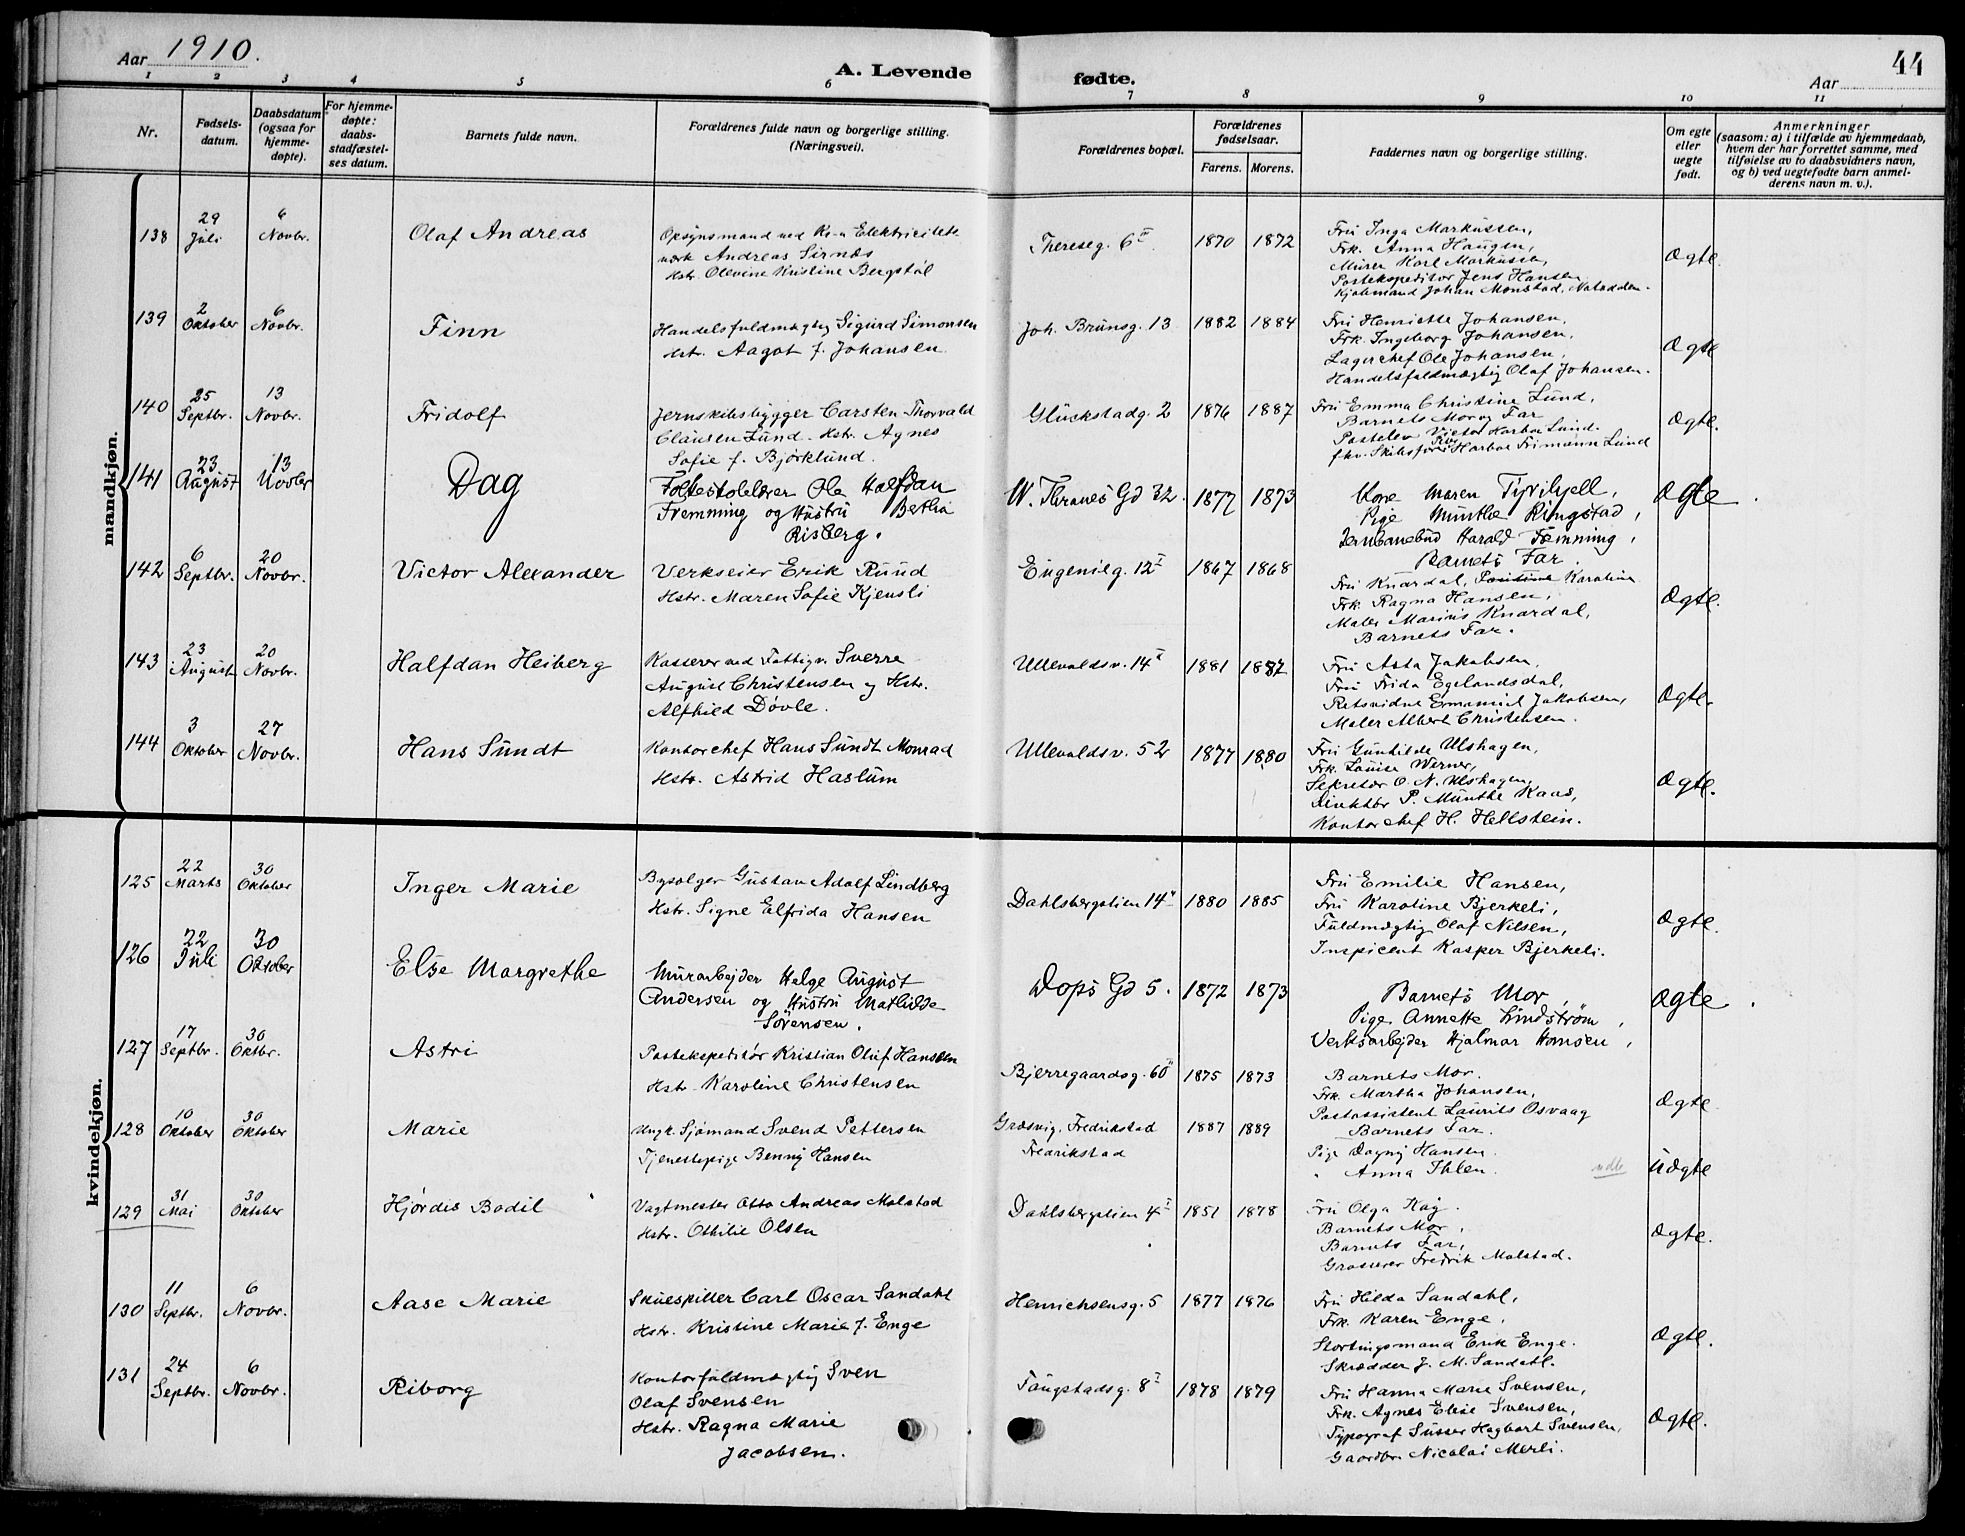 Aar 1910.
A. Levende fødte.
Aar
44
1 2 3 4 5 6 7 8 9 10 11
Nr.
Fødsels-
datum.
Daabsdatum
(ogsaa for
hjemme-
døpte).
For hjemme-
døpte:
daabs-
stadfæstel-
ses datum.
Barnets fulde navn.
Forældrenes fulde navn og borgerlige stilling.
(Næringsvei).
Forældrenes bopæl.
Forældrenes
fødselsaar.
Farens. Morens.
Faddernes navn og borgerlige stilling.
Om egte
eller
uegte
født.
Anmerkninger
(saasom: a) i tilfælde av hjemmedaab,
hvem der har forrettet samme, med
tilføielse av to daabsvidners navn,
og b) ved uegtefødte barn anmel-
derens navn m. v.).
mandkjøn.
138
29
Juli
6
Novbr.
Olaf Andreas
Opsynsmand ved Kr.a Elektricitets
verk Andreas Sirnæs
Hstr. Olevine Kristine Bergstøl
Thereseg. 6 III
1870 1872
Fru Inga Markussen,
Frk. Anna Haugen,
Murer Karl Markussen,
Postekspeditør Jens Hansen
Kjøbmand Johan Monstad, Notodden.
Ægte.
139
2
Oktober
6
Novbr.
Finn
Handelsfuldmægtig Sigurd Simonsen
Hstr. Aagot f. Johansen
Joh. Brunsg. 13
1882 1884
Fru Henriette Johansen,
Frk. Ingeborg Johansen,
Lagerchef Ole Johansen,
Handelsfuldmægtig Olaf Johansen.
Ægte
140
25
Septbr.
13
Novbr.
Fridolf
Jernskibsbygger Carsten Thorvald
Clausen Lund. Hstr. Agnes
Sofie f. Bjørklund.
Glückstadg. 2
1876 1887
Fru Emma Christine Lund,
Barnets Mor og Far
Postelev Victor Harboe Lund.
fhv. Skibsfører Harboe Frimann Lund
Ægte.
141
23
August
13
Novbr
Dag
Folkeskolelærer Ole Halfdan
Fremming og Hustru Bethia
Risberg.
W. Thranes Gd 32.
1877 1873
Kone Maren Tyrihjell,
Pige Minthe Ringstad,
Jernbanebud Harald Fremming,
Barnets Far.
Ægte.
142
6
Septbr.
20
Novbr.
Victor Alexander
Verkseier Erik Ruud
Hstr. Maren Sofie Kjensli
Eugenieg. 12 I
1867 1868
Fru Knardal, Karoline
Frk. Ragna Hansen,
Maler Marius Knardal,
Barnets Far.
Ægte.
143
23
August
20
Novbr.
Halfdan Heiberg
Kasserer ved Fattigv. Sverre
August Christensen og Hstr.
Alfhild Døvle.
Ullevoldsv. 14 II
1881 1882
Fru Asta Jakobsen,
Fru Frida Egelandsdal,
Retsvidne Emanuel Jakobsen,
Maler Albert Christensen.
Ægte.
144
3
Oktober
27
Novbr.
Hans Sundt
Kontorchef Hans Sundt Monrad
Hstr. Astrid Haslum
Ullevoldsv. 52
1877 1880
Fru Gunhilde Ulshagen,
Frk. Louise Werner,
Sekretær O. N. Ulshagen,
Direktør P. Munthe Kaas,
Kontorchef H. Hellstein.
Ægte.
kvindekjøn.
125
22
Marts
30
Oktober
Inger Marie
Bysælger Gustav Adolf Lindberg
Hstr. Signe Elfrida Hansen
Dahlsbergstien 14 II
1880 1885
Fru Emilie Hansen,
Fru Karoline Bjerkeli,
Fuldmægtig Olaf Nilsen,
Inspicent Kasper Bjerkeli.
Ægte.
126
22
Juli
30
Oktober
Else Margrethe
Murarbejder Helge August
Andersen og Hustru Mathilde
Sörensen.
Dops Gd 5.
1872 1873
Barnets Mor,
Pige Annette Lindstrøm,
Verksarbejder Hjalmar Hansen,
Ægte.
127
17
Septbr.
30
Oktbr.
Astri
Postekspeditør Kristian Oluf Hansen
Hstr. Karoline Christensen
Bjerregaardsg. 60 II
1875 1873
Barnets Mor.
Frk. Martha Johansen,
Postassistent Laurits Osvaag
Barnets Far.
Ægte.
128
10
Oktober
30
Oktober
Marie
Ungk. Sjømand Svend Pettersen
Tjenestepige Benny Hansen
Græsvig, Fredrikstad
Fredrikstad
1887 1889
Pige Dagny Hansen
" Anna Ihlen.
Uægte
129
31
Mai
30
Oktober
Hjørdis Bodil
Vagtmester Otto Andreas Molstad
Hstr. Othilie Olsen
Dahlsbergstien 4 I
1851 1878
Fru Olga Kag.
Barnets Mor,
Barnets Far,
Grosserer Fredrik Molstad.
Ægte.
130
11
Septbr.
6
Novbr.
Aase Marie
Skuespiller Carl Oscar Sandahl
Hstr. Kristine Marie f. Enge
Henrichsensg. 5
1877 1876
Fru Hilda Sandahl,
Frk. Karen Enge,
Stortingsmand Erik Enge.
Skrædder J. M. Sandahl.
Ægte.
131
24
Septbr.
6
Novbr.
Riborg
Kontorfuldmægtig Sven
Olaf Svensen
Hstr. Ragna Marie
Jacobsen.
Faugstadsg. 8 I
1878 1879
Fru Hanna Marie Svensen,
Frk. Agnes Elise Svensen,
Typograf Susser Hagbart Svensen,
Gaardbr. Nicolai Merli.
Ægte.